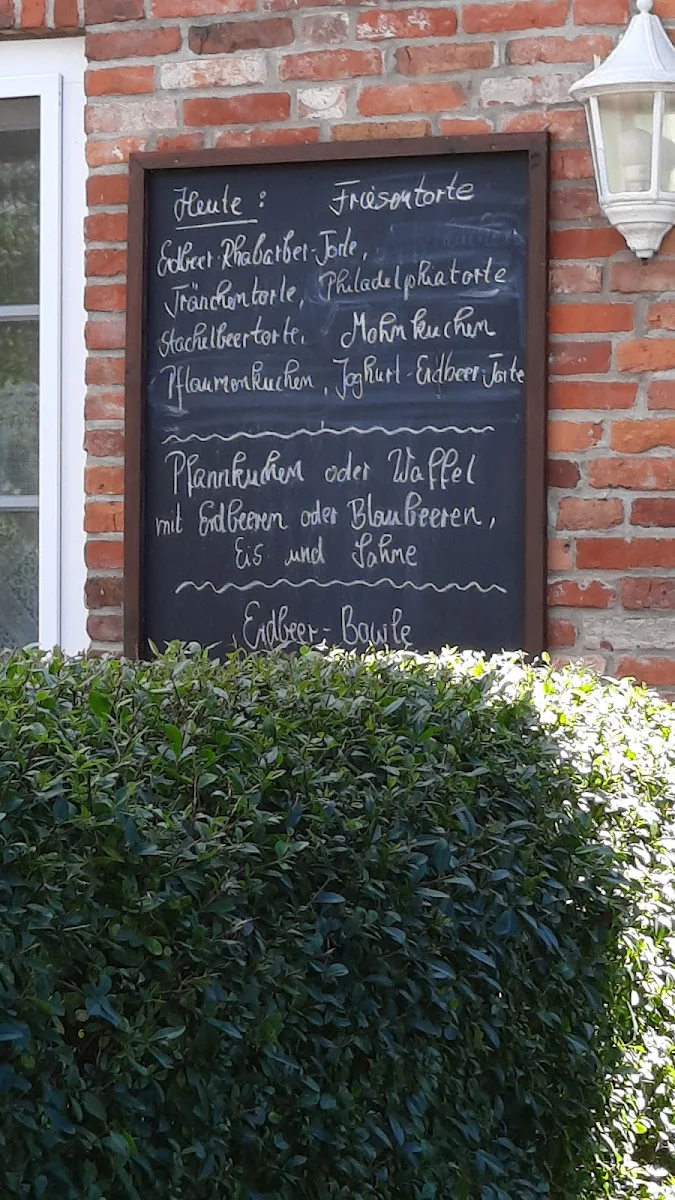 Heute : Friesentorte
Erdbeer-Rhabarber-Torte,
Tränchentorte, Philadelphiatorte
Stachelbeertorte, Mohnkuchen
Pflaumenkuchen, Joghurt-Erdbeer-Torte
Pfannkuchen oder Waffel
mit Erdbeeren oder Blaubeeren,
Eis und Sahne
Erdbeer-Bowle